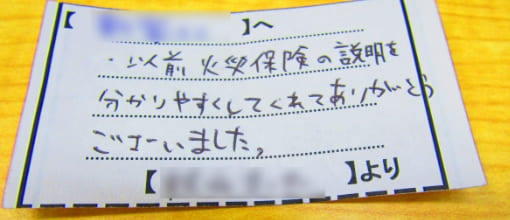 【 】へ
・以前火災保険の説明を
分かりやすくしてくれてありがとう
ございました。
【 】より